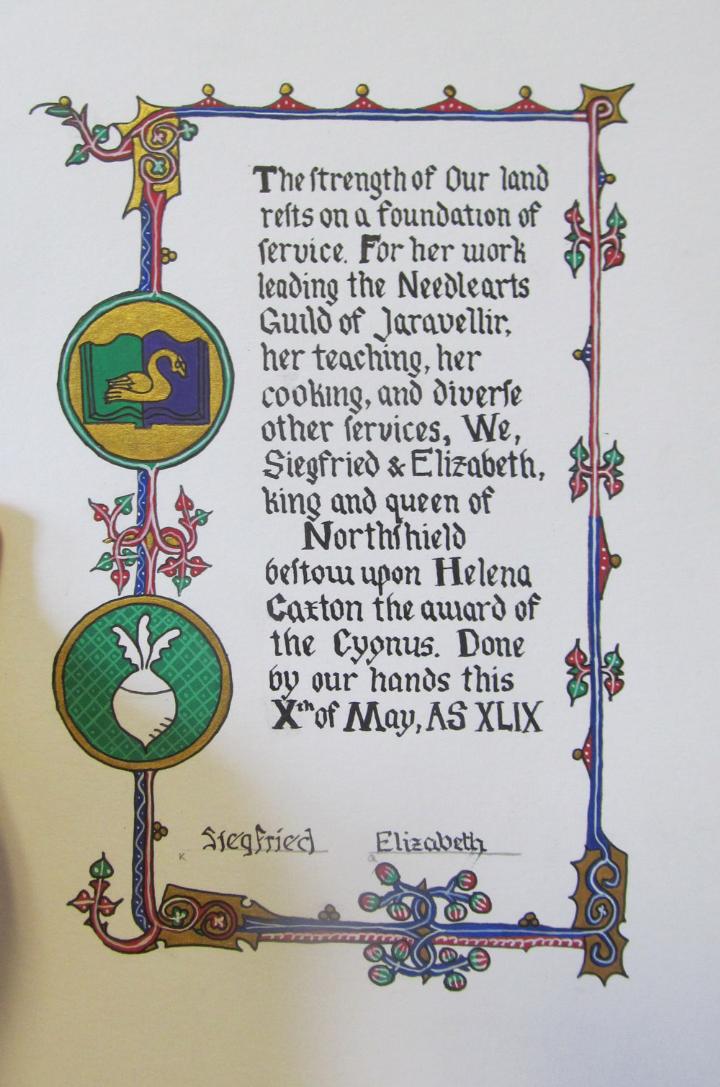 The ſtrength of Our land
reſts on a foundation of
ſervice. For her work
leading the Needlearts
Guild of Jaravellir,
her teaching, her
cooking, and diverſe
other ſervices, We,
Siegfried & Elizabeth,
king and queen of
Northſhield
beſtow upon Helena
Caxton the award of
the Cygnus. Done
by our hands this
Xth of May, AS XLIX
Siegfried Elizabeth
K Q